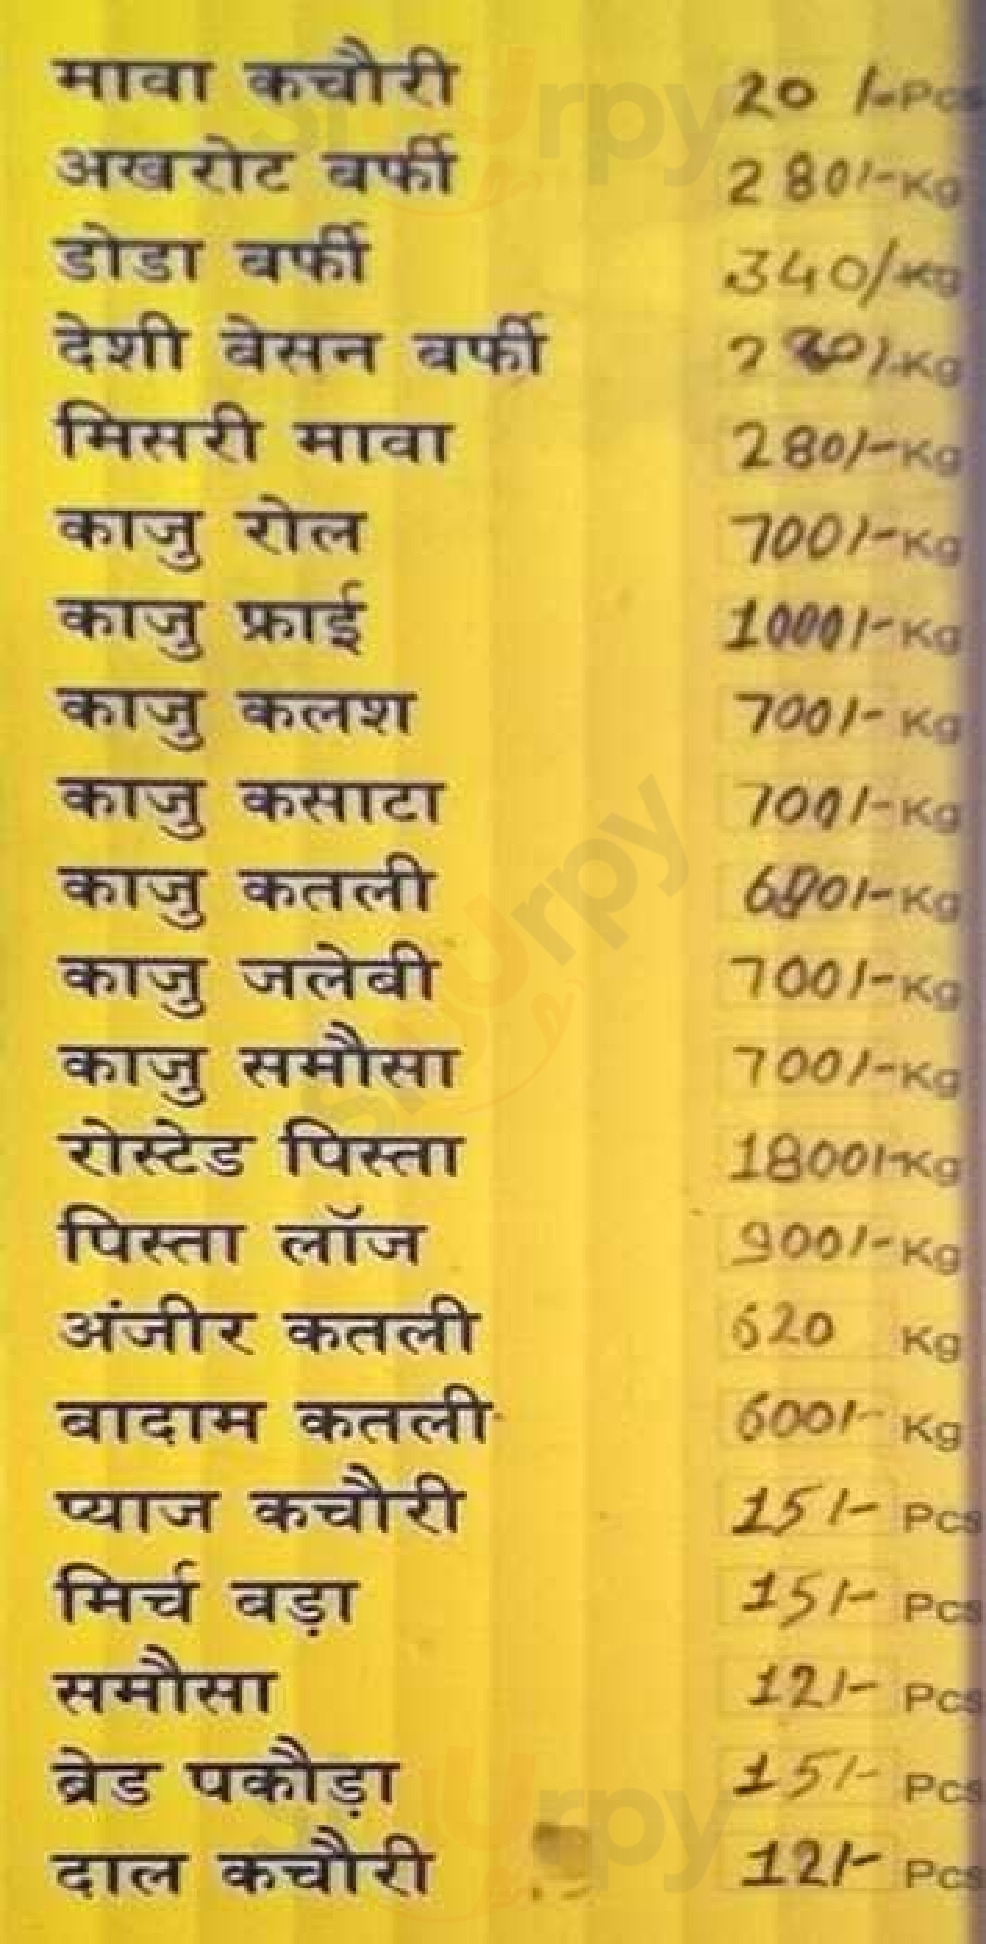 मावा कचौरी 20 /- Pcs
अखरोट बर्फी 280/- Kg
डोडा बर्फी 340/- Kg
देशी बेसन बर्फी /- Kg
मिसरी मावा 280/- Kg
काजु रोल 700/- Kg
काजु फ्राई 1000/- Kg
काजु कलश 700/- Kg
काजु कसाटा 700/- Kg
काजु कतली /- Kg
काजु जलेबी 700/- Kg
काजु समौसा 700/- Kg
रोस्टेड पिस्ता 1800/- Kg
पिस्ता लॉज 900/- Kg
अंजीर कतली 620 Kg
बादाम कतली 600/- Kg
प्याज कचौरी 15/- Pcs
मिर्च बड़ा 15/- Pcs
समौसा 12/- Pcs
ब्रेड पकौड़ा 15/- Pcs
दाल कचौरी 12/- Pcs